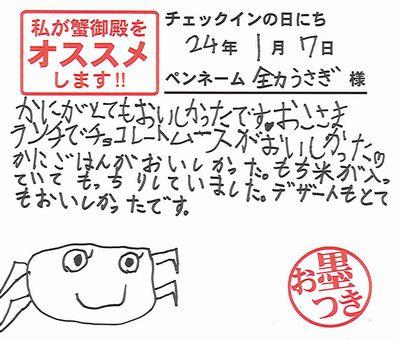 私が蟹御殿を
オススメ
します!!
チェックインの日にち
24年 1月7日
ペンネーム 全力うさぎ 様
かにがとてもおいしかったです。おこさま
ランチでチョコレートムースがおいしかった。
かにごはんがおいしかった。もち米が入っ
ていてもっちりしていました。デザートもとて
もおいしかったです。
お墨
つき